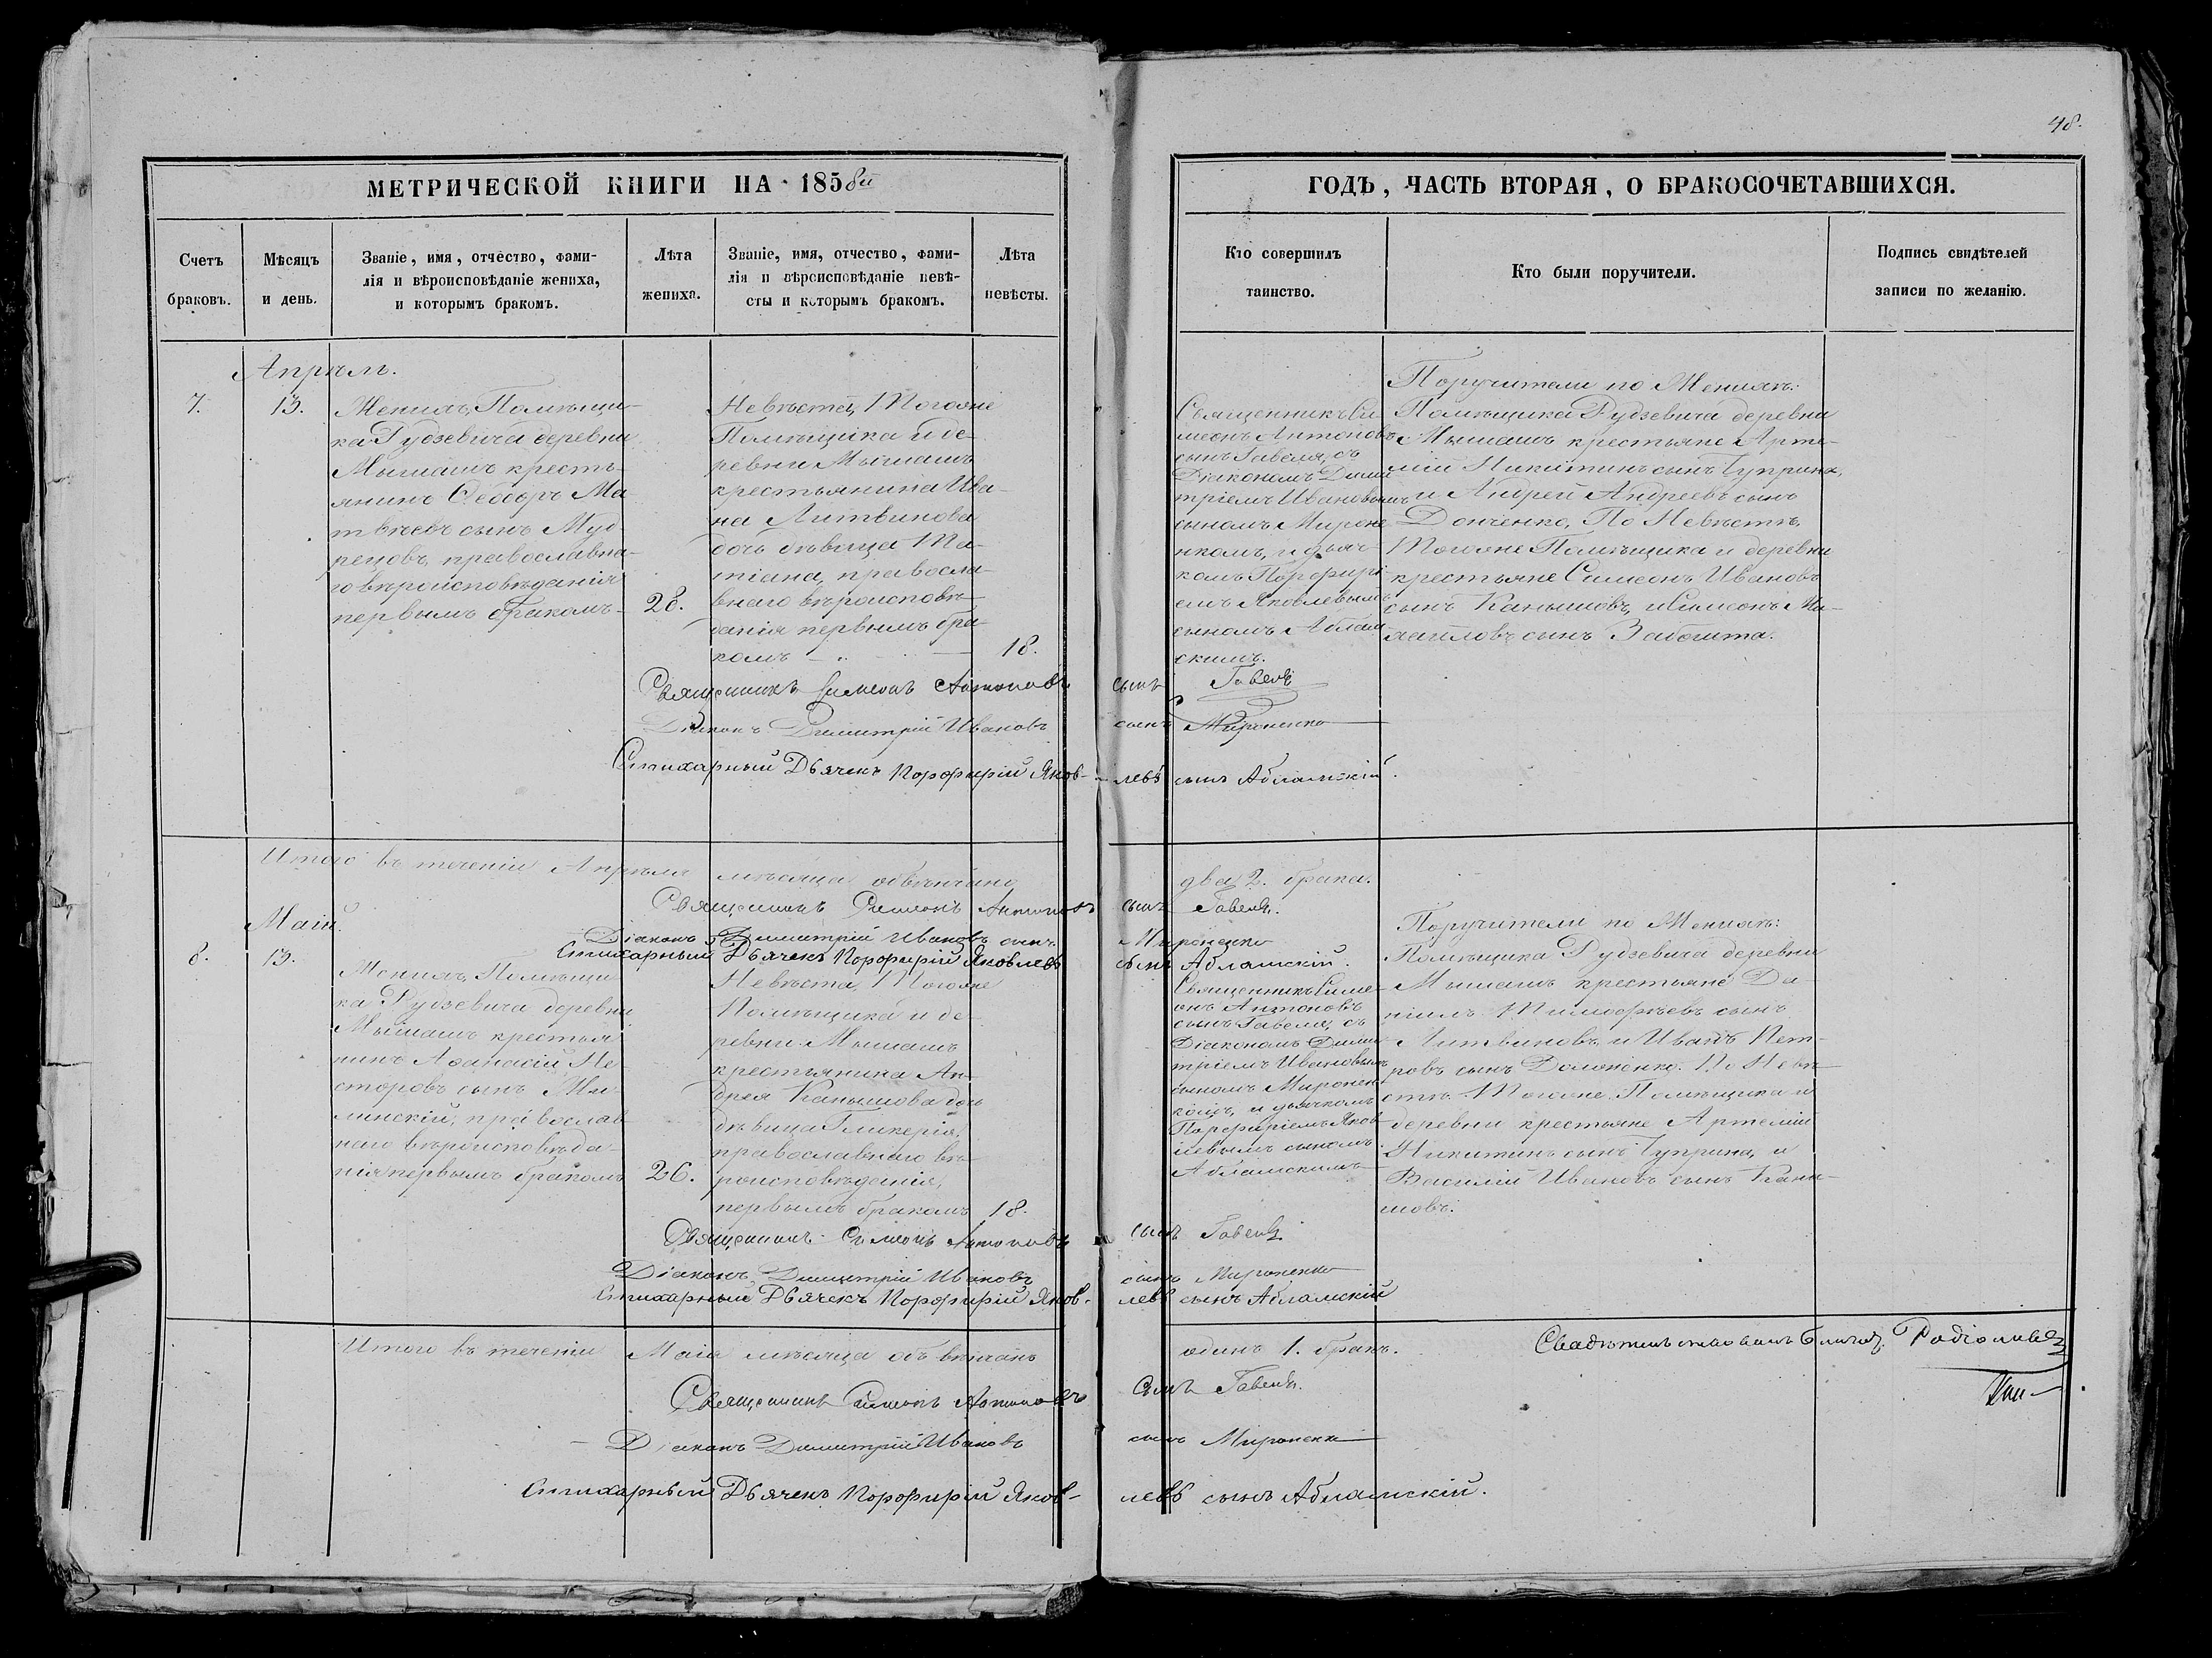 48.
МЕТРИЧЕСКОЙ КНИГИ НА 1858й
ГОДЪ, ЧАСТЬ ВТОРАЯ, О БРАКОСОЧЕТАВШИХСЯ.
Счетъ
браковъ.
Мѣсяцъ
и день.
Званіе, имя, отчество, фами-
лія и вѣроисповѣданіе жениха,
и которымъ бракомъ.
Лѣта
жениха.
Званіе, имя, отчество, фами-
лія и вѣроисповѣданіе невѣ-
сты и которымъ бракомъ.
Лѣта
невѣсты.
Кто совершилъ
таинство.
Кто были поручители.
Подпись свидѣтелей
записи по желанію.
7.
13.
Женихъ, Помѣщи-
ка Рудзевича деревни
Мышашъ кресть-
янинъ Ѳеодоръ Ма-
твѣевъ сынъ
православна-
го вѣроисповѣданія
первымъ бракомъ
28.
Невѣста, Тогоже
Помѣщика и де-
ревни Мышашъ
крестьянина Ива-
на Литвинова
дочь дѣвица Та-
тіана, правосла-
внаго вѣроисповѣ-
данія первымъ бра-
комъ
18.
Священникъ Си-
меонъ Антоновъ
сынъ Гавеля, съ
Діакономъ Дими-
тріемъ Ивановымъ
сыномъ Мироне-
нкомъ, и дьяч-
комъ Порфирі-
емъ Яковлевымъ
сыномъ Аблам-
скимъ.
Поручители по Женихѣ:
Помѣщика Рудзевича деревни
Мышашъ крестьяне Арте-
мій Никитинъ сынъ Чуприна,
и Андрей Андреевъ сынъ
Донченко, По Невѣстѣ,
Тогоже Помѣщика и деревни
крестьяне Симеонъ Ивановъ
сынъ Канышовъ, и Симеонъ Ми-
хайловъ сынъ
Священникъ Симеонъ Антоновъ сынъ
Діаконъ Димитрій Ивановъ сынъ Мироненко
Стихарный Дьячекъ Порфирій Яков-левъ сынъ Абламскій.
Итого въ теченіи Апрѣля мѣсяца обвѣнчано два 2. брака.
Священникъ Симеонъ Антоновъ сынъ
Маій.
Діаконъ Димитрій Ивановъ сынъ Мироненко
Стихарный Дьячекъ Порфирій Яковлевъ сынъ Абламскій.
8.
13.
Женихъ, Помѣщи-
ка Рудзевича деревни
Мышашъ крестья-
нинъ Аѳанасій Не-
сторовъ сынъ
православ-
наго вѣроисповѣда-
нія первымъ бракомъ
26.
Невѣста, Тогоже
Помѣщика и де-
ревни Мышашъ
крестьянина Ан-
дрея Канышова дочь
дѣвица Гликерія,
православнаго вѣ-
роисповѣданія,
первымъ бракомъ
18.
Священникъ Симе-
онъ Антоновъ
сынъ Гавеля, съ
Діакономъ Дими-
тріемъ Ивановымъ
сыномъ Миронен-
комъ, и дьячкомъ
Порфиріемъ Яков-
левымъ сыномъ
Абламскимъ
Поручители по Женихѣ:
Помѣщика Рудзевича деревни
Мышашъ крестьяне Да-
ніилъ Тимофѣевъ сынъ
Литвиновъ, и Иванъ Пет-
ровъ сынъ По Невѣ-
стѣ. Тогоже, Помѣщика и
деревни крестьяне Артемій
Никитинъ сынъ Чуприна, и
Василій Ивановъ сынъ Каны-
шовъ.
Священникъ Симеонъ Антоновъ сынъ
Діаконъ Димитрій Ивановъ сынъ Мироненко
Стихарный Дьячекъ Порфирій Яков-левъ сынъ Абламскій
Итого въ теченіи Маія мѣсяца обвѣнчанъ одинъ 1. бракъ.
Священникъ Симеонъ Антоновъ сынъ
Діаконъ Димитрій Ивановъ сынъ Мироненко
Стихарный Дьячекъ Порфирій Яков-левъ сынъ Абламскій.